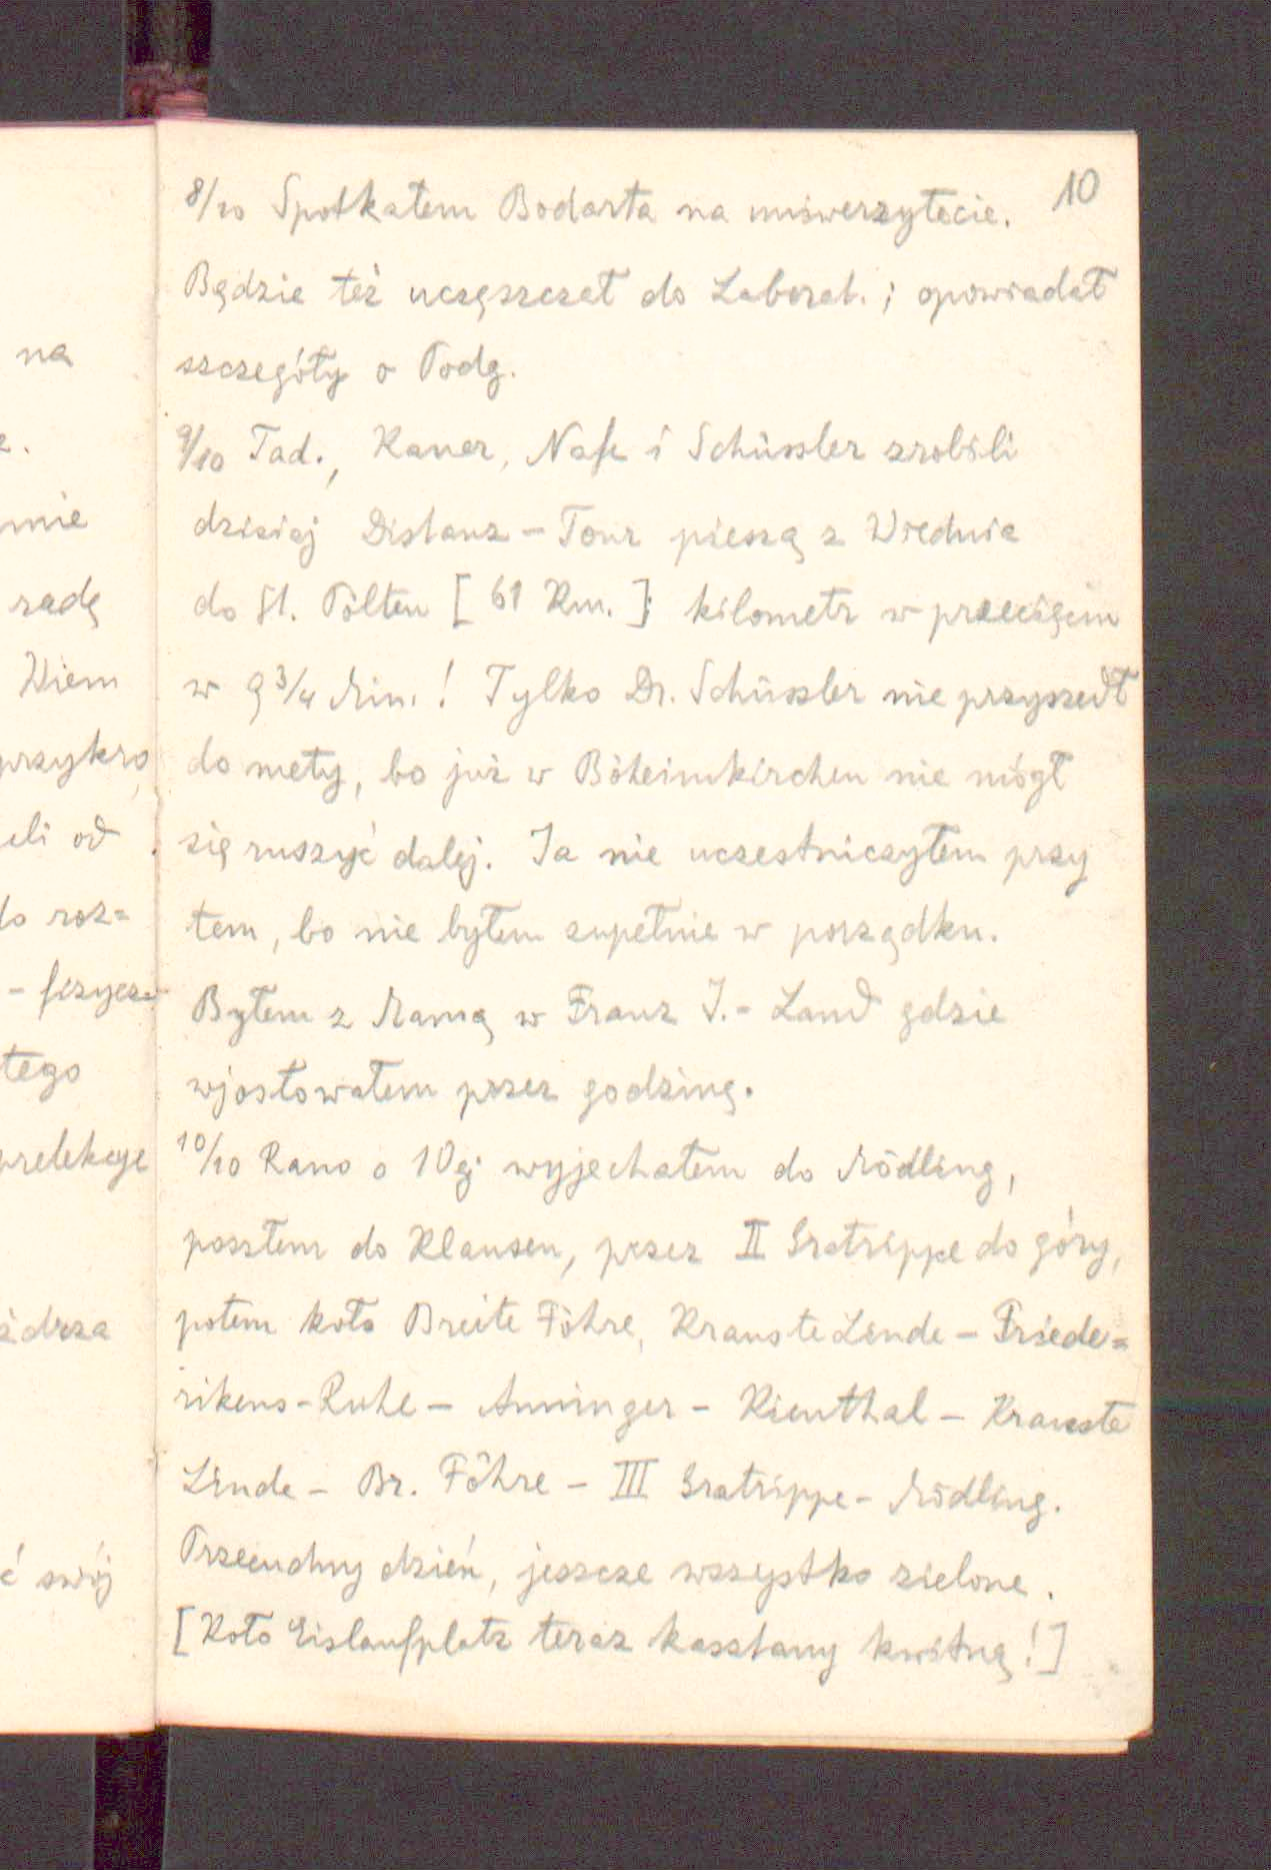 na
mnie
radę
Wiem
przykro,
eli od
do roz=
- fizycz=
tego
prelekcye
ć swój
10
8/10 Spotkałem Bodarta na uniwerzytecie.
Będzie też uczęszczał do Laborat.; opowiadał
szczegóły o Podg.
9/10 Tad., Kauer, i Schüssler zrobili
dzisiaj Distanz-Tour pieszą z Wiednia
do St. Pölten [61 Km.]; kilometr w przecięciu
w 9 3/4 Min.! Tylko Dr. Schüssler nie przyszedł
do mety, bo już w Böheimkirchen nie mógł
się ruszyć dalej. Ja nie uczestniczyłem przy
tem, bo nie byłem zupełnie w porządku.
Byłem z Mamą w Franz J.-Land gdzie
wjosłowałem przez godzinę.
10/10 Rano o 10ej wyjechałem do Mödling,
poszłem do Klausen, przez II Gratrippe do góry,
potem koło Breite Föhre, Krauste Linde - Friede=
rikens-Ruhe - Anninger - Kienthal - Krauste
Linde - Br. Föhre - III Gratrippe - Mödling.
Przecudny dzień, jeszcze wszystko zielone.
[Koło Eislaufplatz teraz kasztany kwitną!]